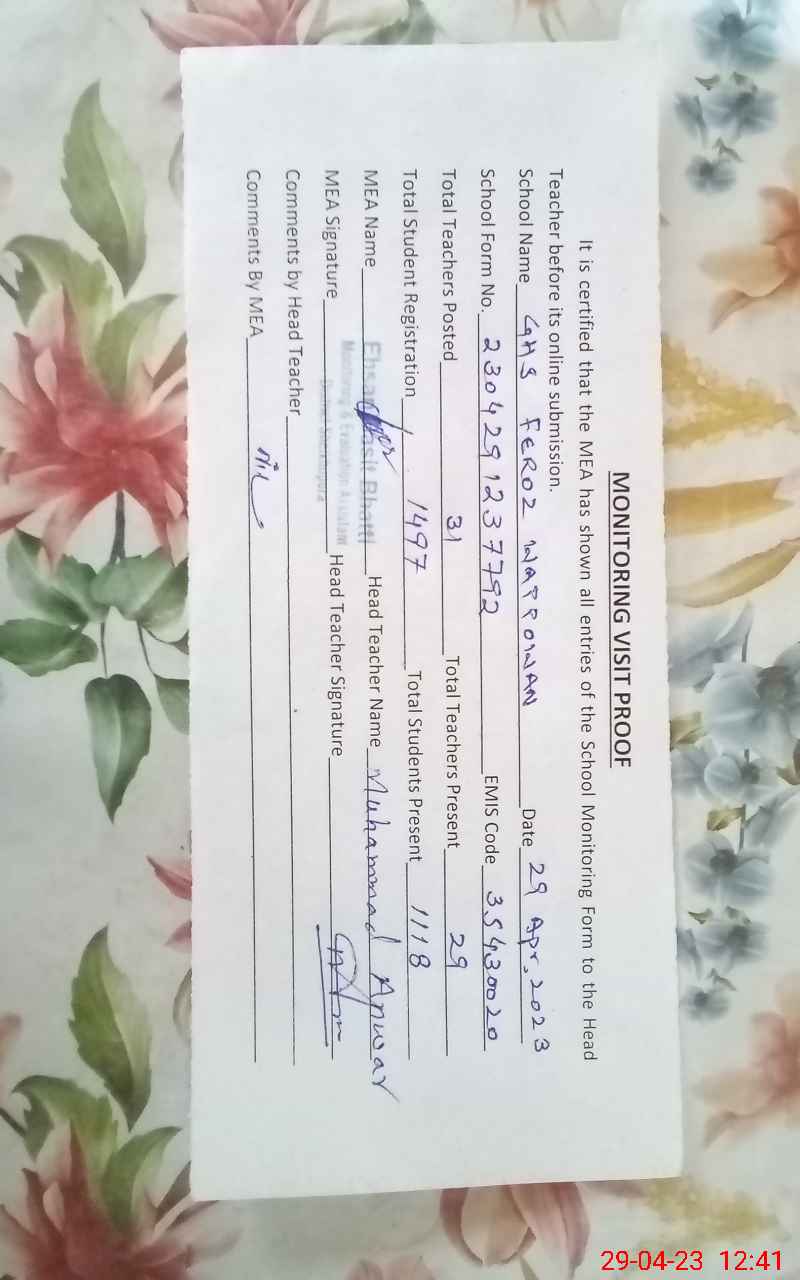 MONITORING VISIT PROOF
It is certified that the MEA has shown all entries of the School Monitoring Form to the Head
Teacher before its online submission.
School Name GHS FEROZ WATTOWAN Date 29 Apr, 2023
School Form No. 2304291237792 EMIS Code 35430020
Total Teachers Posted 31 Total Teachers Present 29
Total Student Registration 1497 Total Students Present 1118
MEA Name Bhatti Head Teacher Name Muhammad Anwar
Monitoring & Evaluation Assistant
MEA Signature Head Teacher Signature
Comments by Head Teacher
Comments By MEA Nil
29-04-23 12:41